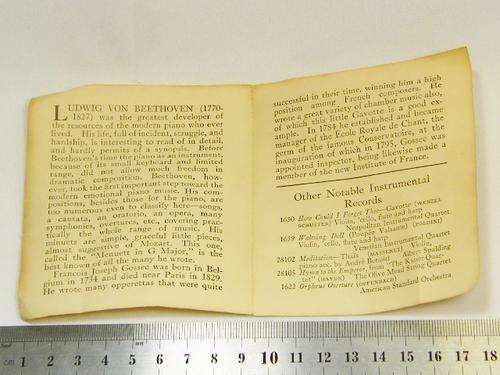 LUDWIG VON BEETHOVEN (1770-
1827) was the greatest developer of
the resources of the modern piano who ever
lived. His life, full of incident, struggle, and
hardship, is interesting to read of in detail,
and hardly permits of a synopsis. Before
Beethoven's time the piano as an instrument,
because of its small keyboard and limited
range, did not allow much freedom in
dramatic composition. Beethoven, how-
ever, took the first important step toward the
modern emotional piano music. His com-
positions, besides those for the piano, are
too numerous even to classify here—songs,
a cantata, an oratorio, an opera, many
symphonies, overtures, etc., covering prac-
tically the whole range of music. His
minuets are simple, graceful little pieces,
almost suggestive of Mozart. This one,
called the "Menuett in G Major," is the
best known of all the many he wrote.
Francois Joseph Gossec was born in Bel-
gium in 1734 and died near Paris in 1829.
He wrote many opperettas that were quite
successful in their time, winning him a high
position among French composers. He
wrote a great variety of chamber music also,
of which this little Gavotte is a good ex-
ample. In 1784 he established and became
manager of the École Royale de Chant, the
germ of the famous Conservatoire, at the
inauguration of which in 1795, Gossec was
appointed Inspector, being likewise made a
member of the new Institute of France.
Other Notable Instrumental
Records
1630 How Could I Forget Thee—Gavotte
Violin, 'cello, flute and harp
Neapolitan Instrumental Quartet
1639 Waltzing Doll (Poupée Valsante)
Violin, 'cello, flute and harp
Venetian Instrumental Quartet
28102 Meditation—Thais (MASSENET) Violin,
piano acc. by André Benoist Albert Spalding
28105 Hymn to the Emperor, from "The Kaiser Quar-
tet" (HAYDN) The Olive Mead String Quartet
1622 Orpheus Overture (OFFENBACH)
American Standard Orchestra
cm 1 2 3 4 5 6 7 8 9 10 11 12 13 14 15 16 17 18